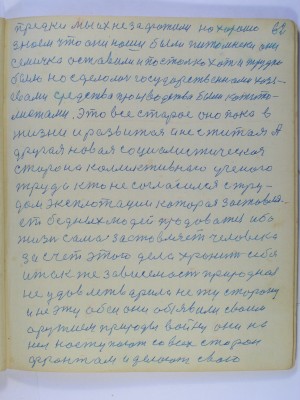 предки мы их не захотели но хорошо 62
знаем что они нашу были питомники они
семечка оставили и постольку хоть и трудно
было но сделали государственными хозя-
евами средства производства были капита-
листами. Это все старое оно пока в
жизни и развитая и не считая А
другая новая социалистическая
сторона коллективного ученого
труда кто не согласился с тру-
дом эксплотации которая заставля-
ет бедных людей продовать ибо
жизнь сама заставляет человека
за счет этого дела хранит себя
и так же зависемость природная
не удовлетварила не ту сторону
и не эту обеи они обявили своим
оружием природе войну они на
нея наступают со всех сторон
фронтам и делают свою